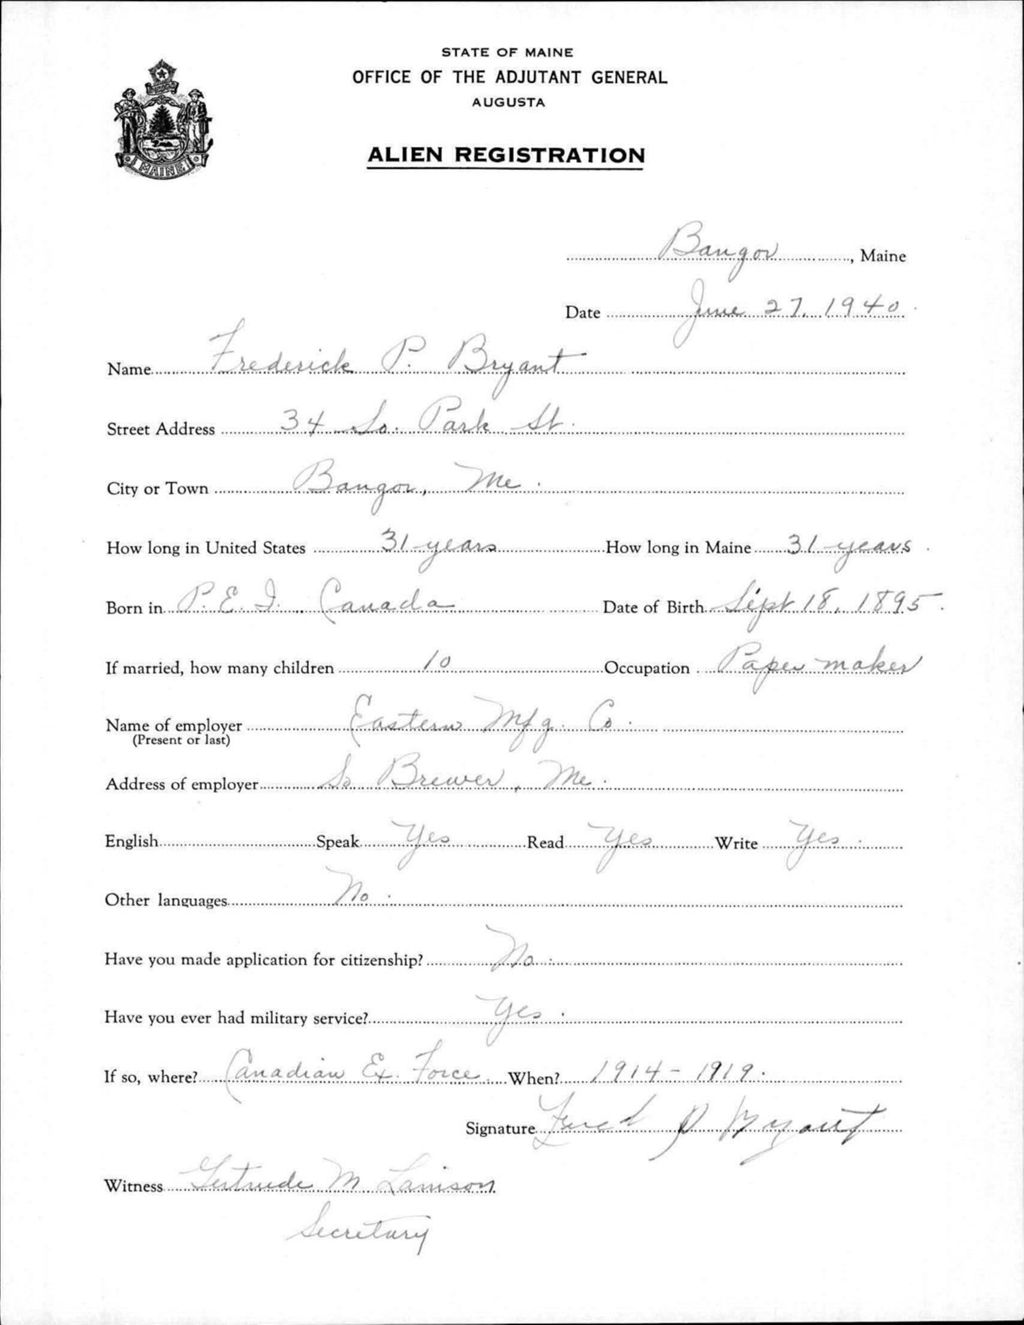 STATE OF MAINE
OFFICE OF THE ADJUTANT GENERAL
AUGUSTA
ALIEN REGISTRATION
MAINE
Bangor, Maine
Date June 27, 1940.
Name Frederick P. Bryant
Street Address 34 So. Park St.
City or Town Bangor, Me.
How long in United States 31 years How long in Maine 31 years.
Born in P. E. I. Canada Date of Birth Sept 18, 1895.
If married, how many children 10 Occupation Paper maker
Name of employer Eastern Mfg. Co.
(Present or last)
Address of employer So Brewer, Me.
English Speak Yes Read Yes Write Yes.
Other languages No.
Have you made application for citizenship? No.
Have you ever had military service? Yes.
If so, where? Canadian Ex. Force When? 1914-1919.
Signature Fred P Bryant
Witness Gertrude M
Secretary